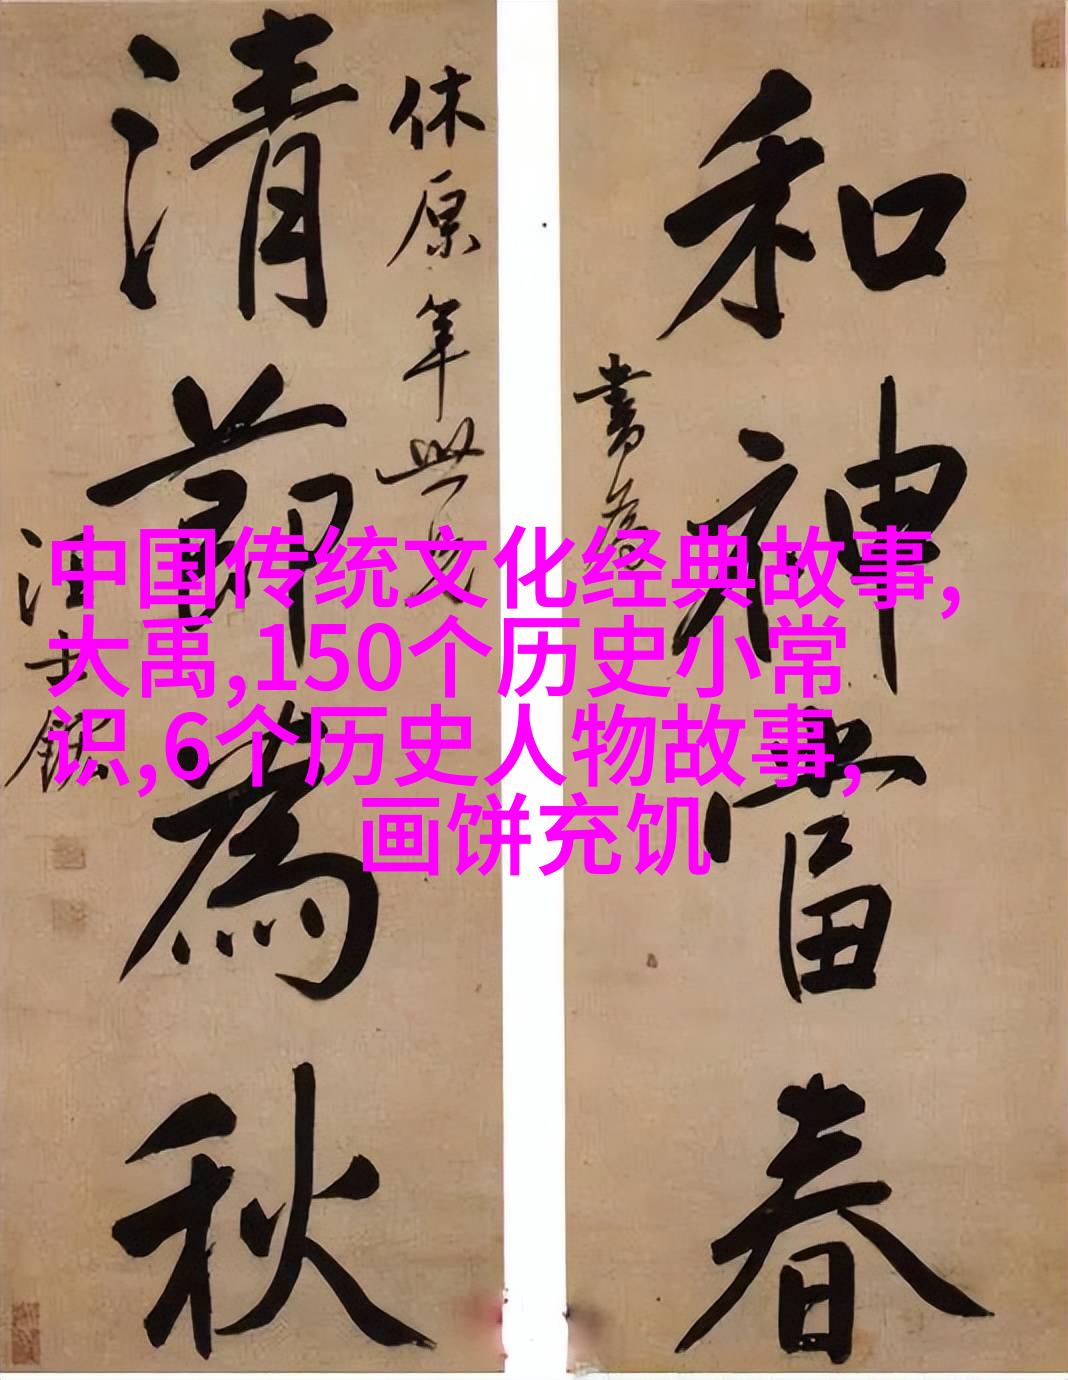 和神當春
書為
休原年世兄
清節為秋
汪士鋐
中国传统文化经典故事,
大禹,150个历史小常
识,6个历史人物故事,
画饼充饥